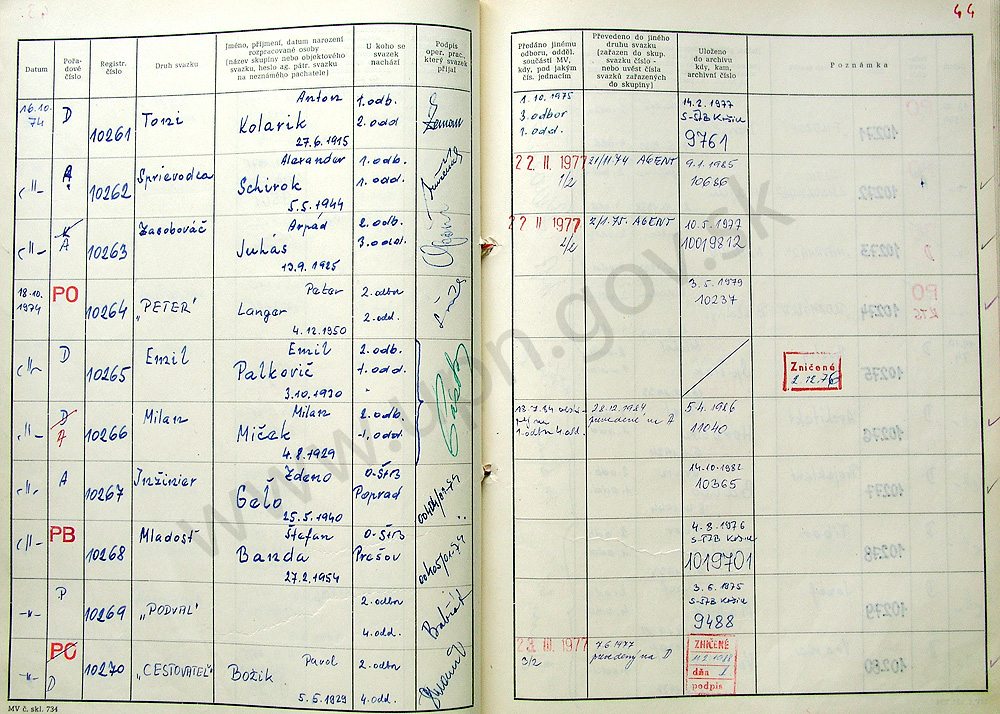 44
Datum
Pořa-
dové
číslo
Registr.
číslo
Druh svazku
Jméno, příjmení, datum narození
rozpracované osoby
(název skupiny nebo objektového
svazku, heslo ag. pátr. svazku
na neznámého pachatele)
U koho se
svazek
nachází
Podpis
oper. prac.,
který svazek
přijal
Předáno jinému
odboru, odděl.
součásti MV,
kdy, pod jakým
čís. jednacím
Převedeno do jiného
druhu svazku
(zařazen do skup.
svazku číslo -
nebo uvést čísla
svazků zařazených
do skupiny)
Uloženo
do archivu
kdy, kam,
archivní číslo
Poznámka
16.10.
74
D
10261
Toni
Anton
Kolarik
27.6.1915
1. odb.
2. odd
1. 10. 1975
3. odbor
1. odd.
14.2.1977
S-ŠtB Košice
9761
-"-
A
10262
Sprievodca
Alexander
Schirok
5.5.1944
1. odb.
1. odd.
22. II. 1977
1/2
21/11.74 AGENT
9.1.1985
10686
-"-
A
10263
Zasobováč
Arpád
Juhás
13.9.1925
2. odb.
3. odd.
22 II 1977
4/2
2/1.75. AGENT
10.5.1977
10019812
18.10.
1974
PO
10264
„PETER"
Peter
Langer
4.12.1950
2. odbor
2. odd.
3.5.1979
10237
-"-
D
10265
Emil
Emil
Palkovič
3.10.1930
2. odb.
1. odd.
Zničené
2.12.76
-"-
D
A
10266
Milan
Milan
Miček
4.8.1929
2. odb.
1. odd
1. odbor 4. odd.
28.12.1984
prevedené na A
5.4.1986
11040
-"-
A
10267
Inžinier
Zdeno
Gešo
25.5.1940
O-ŠtB
Poprad
14.10.1982
10365
-"-
PB
10268
Mladosť
Štefan
Banda
27.2.1954
O-ŠtB
Prešov
4.8.1976
S-ŠtB Košice
1019701
-"-
P
10269
„PODVAL"
2. odbor
4. odd.
3.6.1975
S-ŠtB Košice
9488
-"-
PO
D
10270
„CESTOVATEĽ"
Pavol
Božik
5.5.1929
2. odbor
4. odd.
23. III. 1977
3/2
7.6.1977
prevedený na D
ZNIČENÉ
dňa
podpis
MV č. skl. 734
www.upn.gov.sk